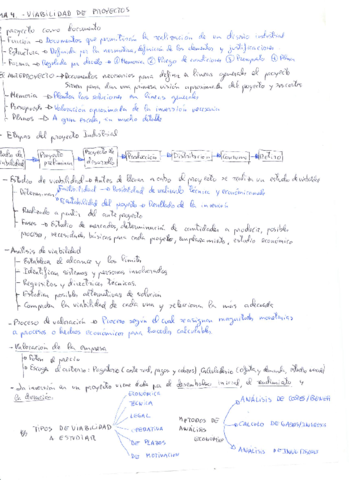 MA 4.- VIABILIDAD DE PROYECTOS
proyecto como documento
- Función → Documentos que la realización de un diseño industrial
- Estructura → Definida por la normativa, definición de los elementos y justificaciones
- Forma → Regulada por decreto → ① Memoria, ② Pliego de condiciones ③ Presupuesto ④ Planos
ANTEPROYECTO → Documentos necesarios para definir a líneas generales el proyecto
Sirven para dar una primera visión aproximada del proyecto y
- Memoria → Plantea las soluciones en líneas generales
- Presupuesto → Valoración aproximada de la inversión necesaria
- Planos → A gran escala, sin mucho detalle
- Etapas del proyecto Industrial
Estudio de viabilidad
Proyecto preliminar
Proyecto de desarrollo
Producción
Distribución
Consumo
Retiro
- Estudio de viabilidad → Antes de llevar a cabo el proyecto se realiza un estudio de viabilidad
- Determinamos
Posibilidad de realizarlo técnica y económicamente
Rentabilidad del proyecto → Resultado de la inversión
- Realizado a partir del anteproyecto
- Fases → Estudio de mercados, determinación de cantidades a producir, posible
proceso, necesidades básicas para cada proyecto, emplazamiento, estudio económico
- Análisis de viabilidad
- Establecer el alcance y los límites
- Identificar sistemas y personas involucradas
- Requisitos y directrices técnicas
- Estudiar posibles alternativas de solución
- Comparar la viabilidad de cada una y seleccionar la más adecuada
- Proceso de valoración → Proceso según el cual se asignan magnitudes monetarias
a procesos o hechos económicos para hacerlos calculables
- Valoración de la empresa
- Fijar el precio
- La inversión en un proyecto viene dada por el desembolso inicial, el rendimiento y
la duración.
TIPOS DE VIABILIDAD A ESTUDIAR
ECONÓMICA
TÉCNICA
LEGAL
OPERATIVA
DE PLAZOS
DE MOTIVACIÓN
MÉTODOS DE ANÁLISIS ECONÓMICO
ANÁLISIS DE COSTE/BENEFI
CÁLCULO DE GASTOS/INGRESOS
ANÁLISIS DE